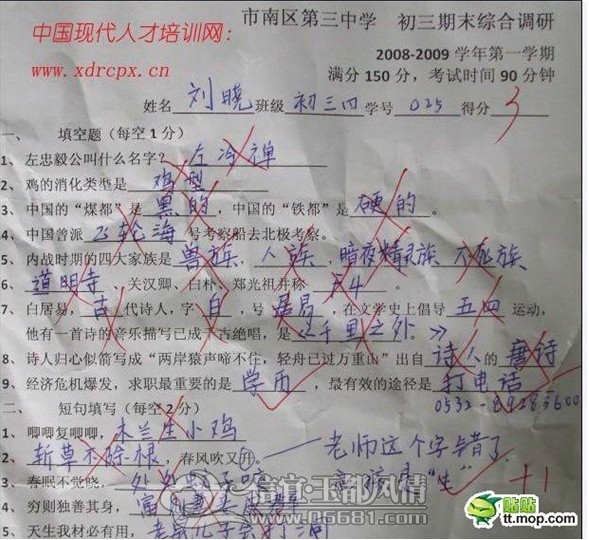 市南区第三中学 初三期末综合调研
中国现代人才培训网：
www.xdrcpx.cn
2008-2009 学年第一学期
满分 150 分，考试时间 90 分钟
姓名 刘晓 班级 初三四 学号 025 得分 3
一、 填空题（每空 1 分）
1、左忠毅公叫什么名字？ 左冷禅
2、鸡的消化类型是 鸡型
3、中国的“煤都”是 黑的 ，中国的“铁都”是 硬的 。
4、中国曾派 飞轮海 号考察船去北极考察。
5、内战时期的四大家族是 兽族 、 人族 、 暗夜精灵族 不死族
6、 道明寺 、关汉卿、白朴、郑光祖并称 F4 。
7、白居易， 古 代诗人，字 白 ，号 居易 ，在文学史上倡导 五四 运动，
他有一首诗的音乐描写已成千古绝唱，是 《千里之外。》
8、诗人归心似箭写成“两岸猿声啼不住，轻舟已过万重山”出自 诗人 的 唐诗
9、经济危机爆发，求职最重要的是 学历 ，最有效的途径是 打电话
0532-89283600
二、 短句填写（每空 2 分）
1、唧唧复唧唧， 木兰生小鸡
2、 斩草不除根 ，春风吹又升。 老师这个字错了
3、春眠不觉晓， 处处 “生” +1
4、穷则独善其身，
5、天生我材必有用， 老鼠儿子会打洞
信宜·玉都风情
www.06681.com
贴贴
tt.mop.com